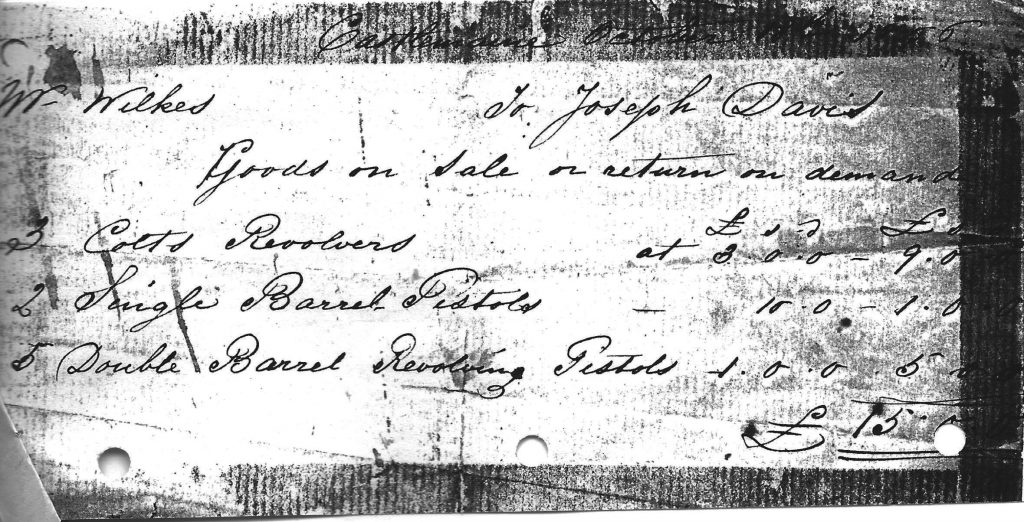 Castlemaine October
Mr. Wilkes To Joseph Davis
Goods on sale or return on demand
£ s d £ s
3 Colts Revolvers at 3 0 . 0 - 9 . 0
2 Single Barrel Pistols — 10 . 0 - 1 . 0
5 Double Barrel Revolving Pistols 1 . 0 . 0 5 0
£ 15